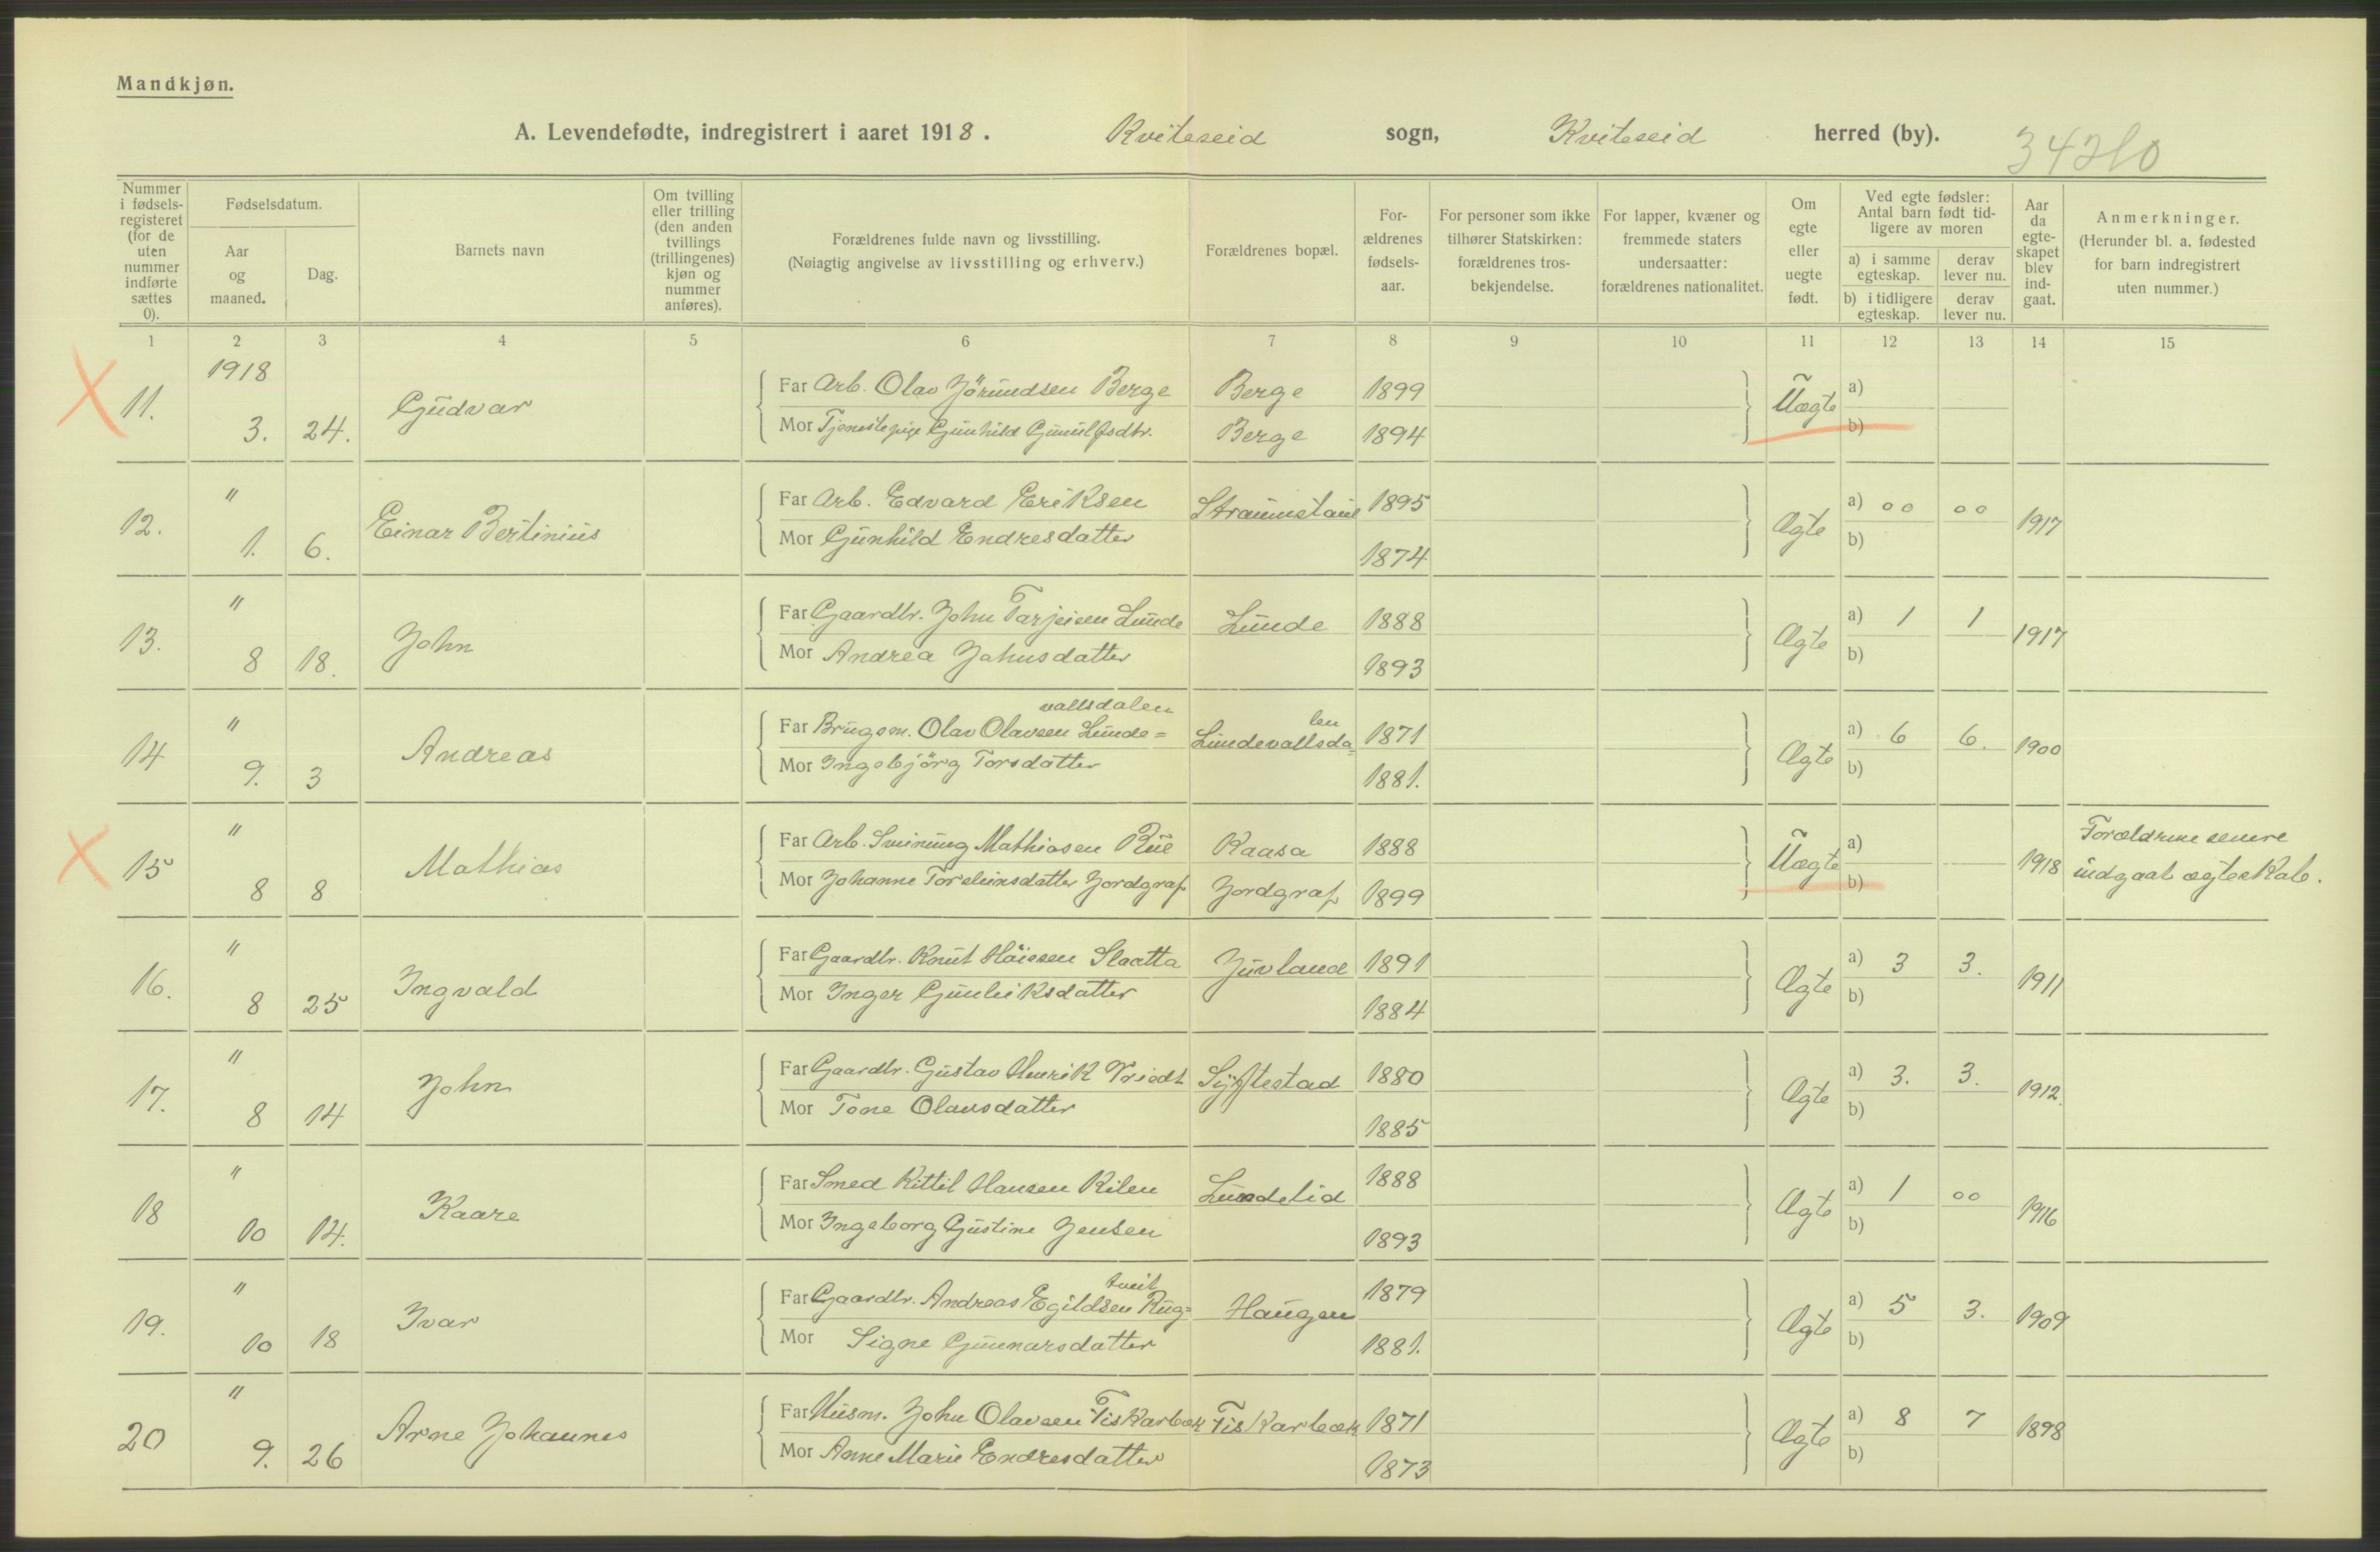 Mandkjøn.
A. Levendefødte, indregistrert i aaret 1918. Kviteseid sogn, Kviteseid herred (by).
Nummer i fødsels-registeret (for de uten nummer indførte sættes 0).
Fødselsdatum.
Aar og maaned.
Dag.
Barnets navn
Om tvilling eller trilling (den anden tvillings (trillingenes) kjøn og nummer anføres).
Forældrenes fulde navn og livsstilling.
(Nøiagtig angivelse av livsstilling og erhverv.)
Forældrenes bopæl.
For-ældrenes fødsels-aar.
For personer som ikke tilhører Statskirken: forældrenes tros-bekjendelse.
For lapper, kvæner og fremmede staters undersaatter: forældrenes nationalitet.
Om egte eller uegte født.
Ved egte fødsler: Antal barn født tid-ligere av moren
a) i samme egteskap.
derav lever nu.
b) i tidligere egteskap.
derav lever nu.
Aar da egte-skapet blev ind-gaat.
Anmerkninger.
(Herunder bl. a. fødested for barn indregistrert uten nummer.)
1 2 3 4 5 6 7 8 9 10 11 12 13 14 15
1918
11. 3. 24. Gudvar
Far Arb. Olav Jörundsen Berge Berge 1899
Mor Tjenestepige Gunhild Gunulfsdtr. Berge 1894
Uægte a) b)
" 12. 1. 6. Einar Bertinius
Far Arb. Edvard Eriksen Straumstane 1895
Mor Gunhild Endresdatter 1874
Ægte a) 00 00 b) 1917
" 13. 8 18. John
Far Gaardbr. John Tarjeisen Lunde Lunde 1888
Mor Andrea Johnsdatter 1893
Ægte a) 1 1 b) 1917
" 14 9. 3 Andreas
Far Brugsm. Olav Olavsen Lunde=vallsdalen Lundevallsda=len 1871
Mor Ingebjörg Torsdatter 1881.
Ægte a) 6 6. b) 1900
" 15 8 8 Mathias
Far Arb. Sveinung Mathiasen Rue Kaasa 1888
Mor Johanne Torsteinsdatter Jordgraf Jordgraf 1899
Uægte a) b) 1918 Forældrene senere
indgaat ægteskab.
" 16. 8 25 Ingvald
Far Gaardbr. Knut Slaatta Juvland 1891
Mor Inger Gunleiksdatter 1884
Ægte a) 3 3. b) 1911
" 17. 8 14 John
Far Gaardbr. Gustav Henrik Vriedt Syftestad 1880
Mor Tone Olavsdatter 1885
Ægte a) 3. 3. b) 1912.
" 18 10 14. Kaare
Far Smed Kittil Hansen Kilen Lundelid 1888
Mor Ingeborg Gustine Jensen 1893
Ægte a) 1 00 b) 1916
" 19. 10 18 Ivar
Far Gaardbr. Andreas Egildsen Rug=tveit Haugen 1879
Mor Signe Gunnarsdatter 1881.
Ægte a) 5 3. b) 1909
" 20 9. 26 Arne Johannes
Far Husm. John Olavsen Fiskarbæk Fiskarbæk 1871
Mor Anne Marie Endresdatter 1873
Ægte a) 8 7 b) 1898